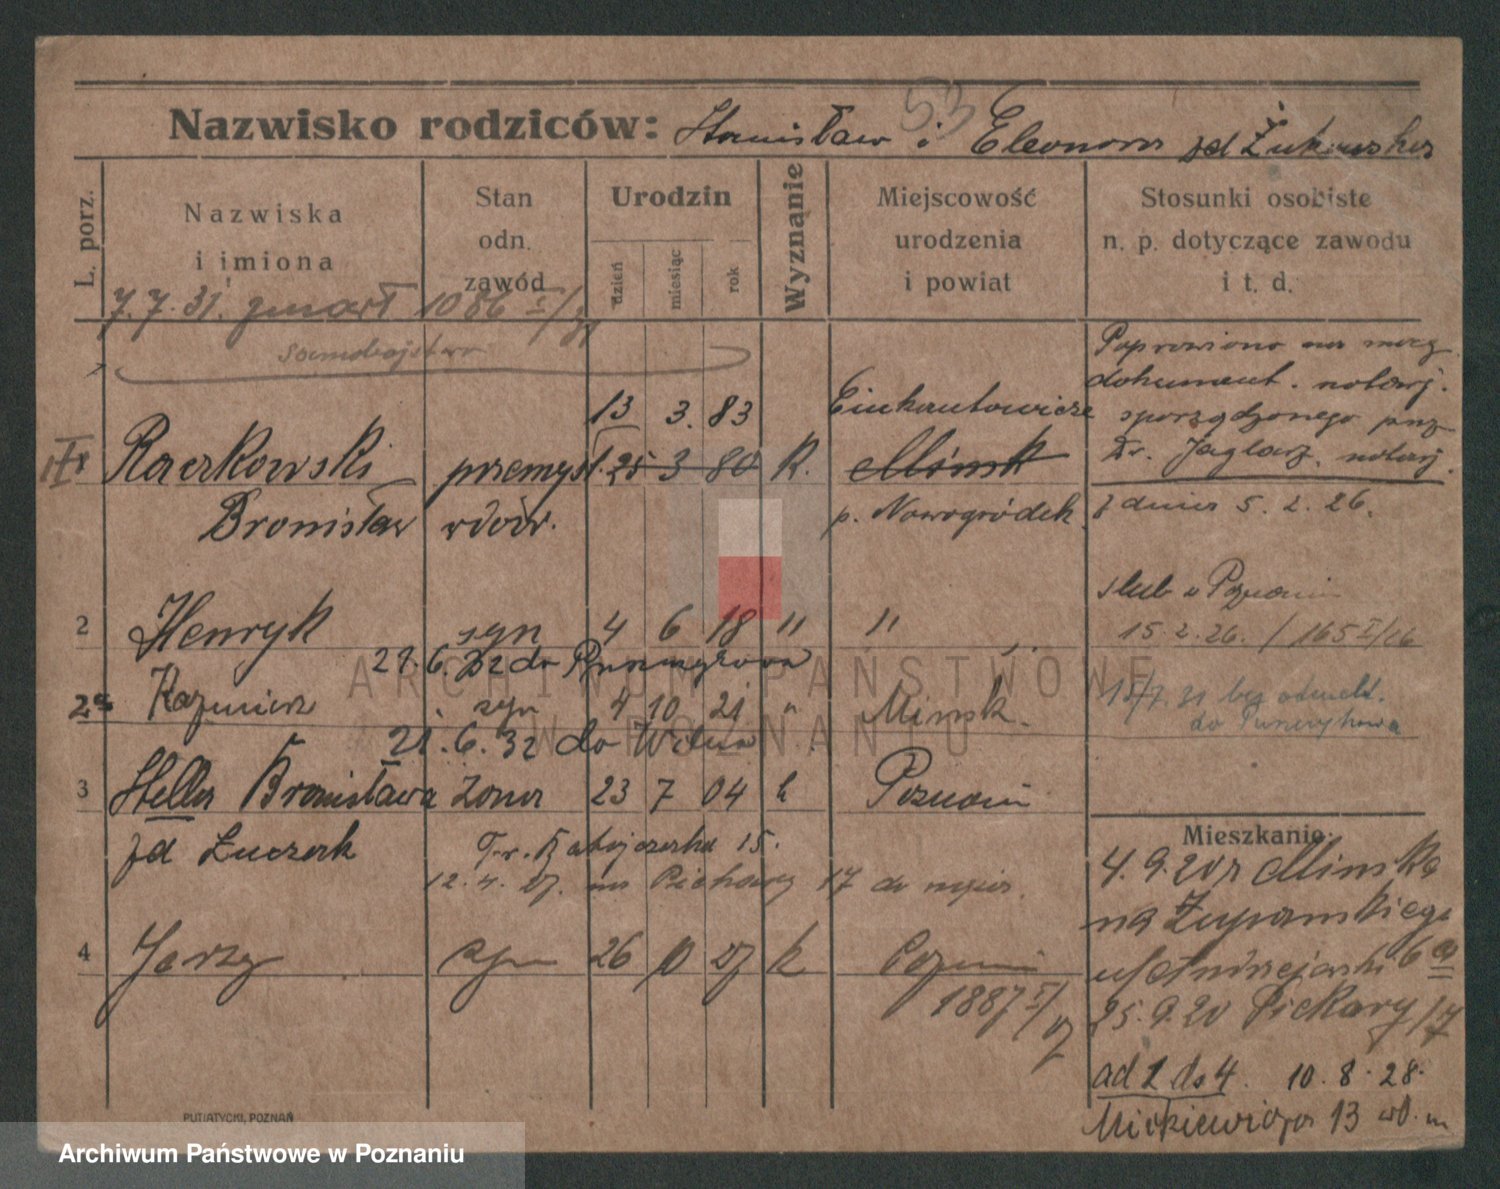 53
Nazwisko rodziców: Stanisław i Eleonora zd Żukowska
L. porz.
Nazwiska
i imiona
Stan
odn.
zawód
Urodzin
dzień
miesiąc
rok
Wyznanie
Miejscowość
urodzenia
i powiat
Stosunki osobiste
n. p. dotyczące zawodu
i t. d.
7.7.31. zmarł 1086 I/31
samobójstwo
Poprawiono na mocy
dokument. notarj.
sporządzonego prz
Dr. Jaglarz. notarj.
z dnia 5.2.26.
13 3. 83
Raczkowski przemysł. 25 3 80 K. Mińsk
Bronisław wdow. p. Nowogródek
ślub w Poznaniu
15.2.26. / 165 I/26
2 Henryk syn 4 6 18 " "
21.6.32 do
2a Kazimierz syn 4 10 21 " Mińsk.
15/7.31 bez odmeld.
do
21.6.32 do Wilna
3 Stella Bronisława żona 23 7 04 k Poznań
zd Łuczak 15.
12.4.27. na Piekary 17 do
4 Jerzy syn 26 10 27 k Poznań
1887 I/27
Mieszkanie:
4.9.20 z Mińska
na Żupańskiego
6a
25.9.20 Piekary 17
ad 1 do 4. 10.8.28.
Mickiewicza 13 wł. m
PUTIATYCKI, POZNAŃ
ARCHIWUM PAŃSTWOWE
W POZNANIU
Archiwum Państwowe w Poznaniu